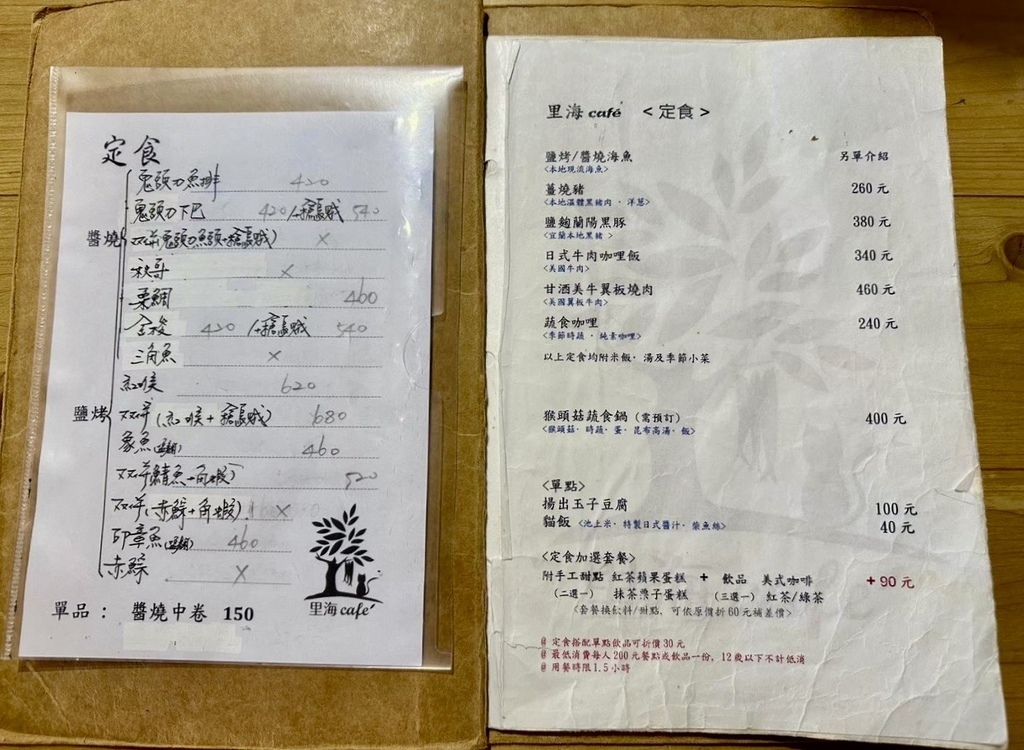 定食
鬼頭刀魚排 420
鬼頭刀下巴 420 / 540
醬燒 双拼 鬼頭刀魚頭 X
秋哥 X
栗鯛 460
420 / 540
三角魚 X
紅喉 620
鹽烤 双拼(紅喉+ ) 680
象魚 460
双拼(鯖魚+角蝦) 520
双拼(赤鯮+角蝦) X
印章魚 460
赤鯮 X
單品： 醬燒中卷 150
里海 cafe'
里海 café <定食>
鹽烤/醬燒海魚 另單介紹
<本地現流海魚>
薑燒豬 260元
<本地溫體黑豬肉、洋蔥>
鹽麴蘭陽黑豚 380元
<宜蘭本地黑豬>
日式牛肉咖哩飯 340元
<美國牛肉>
甘酒美牛翼板燒肉 460元
<美國翼板牛肉>
蔬食咖哩 240元
<季節時蔬、純素咖哩>
以上定食均附米飯、湯及季節小菜
猴頭菇蔬食鍋 (需預訂) 400元
<猴頭菇、時蔬、蛋、昆布高湯、飯>
<單點>
揚出玉子豆腐 100元
貓飯 <池上米、特製日式醬汁、柴魚絲> 40元
<定食加選套餐>
附手工甜點 紅茶蘋果蛋糕 + 飲品 美式咖啡 +90元
(二選一) 抹茶戚子蛋糕 (三選一) 紅茶/綠茶
<套餐換飲料/甜點，可依原價折60元補差價>
@ 定食搭配單點飲品可折價30元
@ 最低消費每人200元餐點或飲品一份，12歲以下不計低消
@ 用餐時限1.5小時